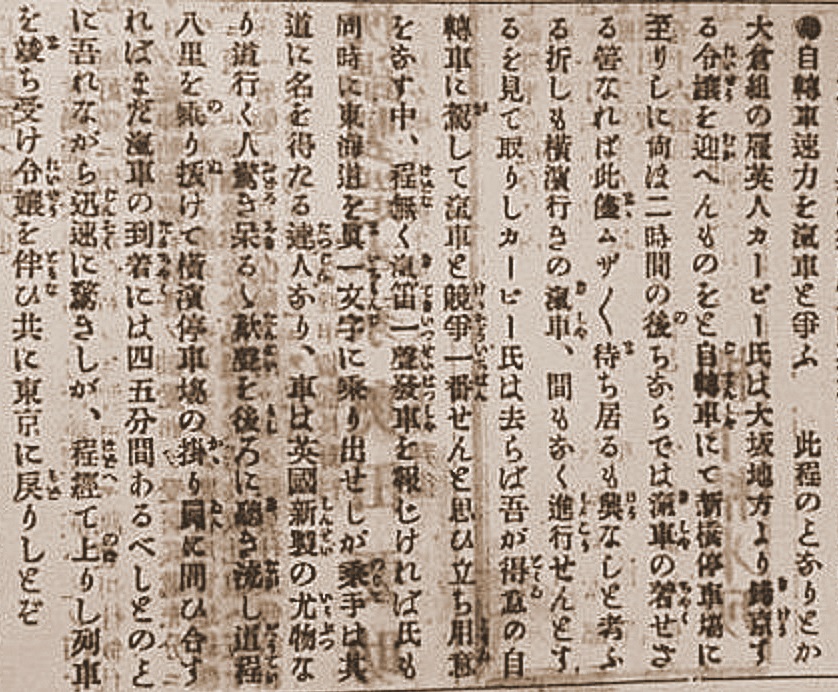 ●自轉車速力を滊車と爭ふ　此程のとかりとか
大倉組の雇英人カービー氏は大坂地方より歸京す
る令孃を迎へんものをと自轉車にて新橋停車塲に
至りしに尙ほ二時間の後ちならでは滊車の着せざ
る筈なれば此儘ムザ〱待ち居るも興なしと考ふ
る折しも橫濱行きの滊車、間もなく進行せんとす
るを見て取りしカービー氏は去らば吾が得意の自
轉車に駕して滊車と競爭一番せんと思ひ立ち用意
をなす中、程無く滊笛一聲發車を報じければ氏も
同時に東海道を眞一文字に乘り出せしが乘手は其
道に名を得たる達人なり、車は英國新製の尤物な
り道行く人驚き呆るゝ歎聲を後ろに聽き流し道程
八里を乘り拔けて橫濱停車塲の掛り員に問ひ合す
ればまだ滊車の到着には四五分間あるべしとのと
に吾れながら迅速に驚きしが、程經て上りし列車
を待ち受け令孃を伴ひ共に東京に戾りしとぞ